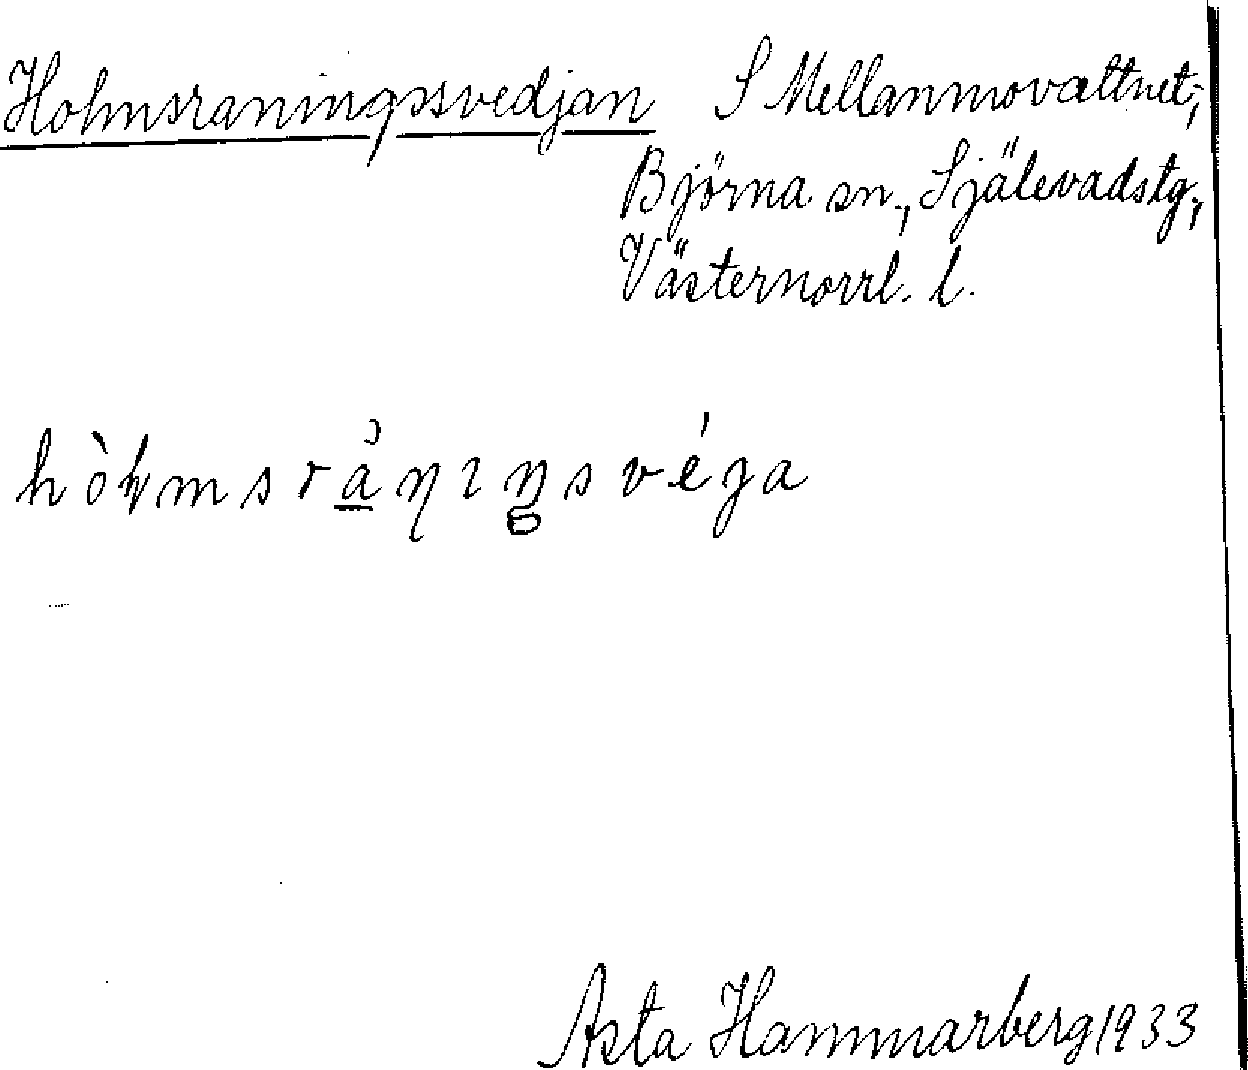 Holmsraningssvedjan S Mellanmovattnet;
Björna sn., Själevadstg;
Västernorrl. l.
Asta Hammarberg 1933